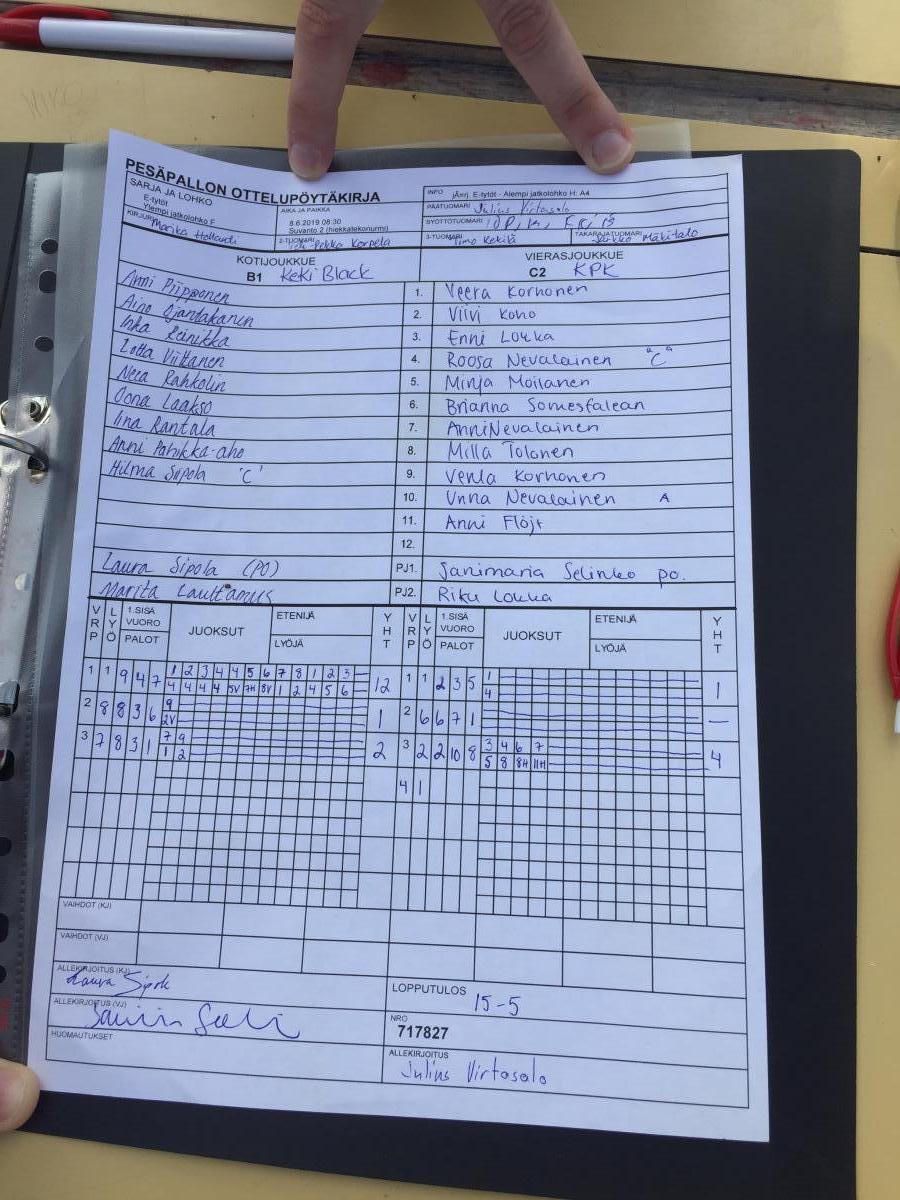 PESÄPALLON OTTELUPÖYTÄKIRJA
SARJA JA LOHKO
E-tytöt
Ylempi jatkolohko F
AIKA JA PAIKKA
8.6.2019 08:30
Suvanto 2 (hiekkatekonurmi)
INFO jÄnrj. E-tytöt - Alempi jatkolohko H: A4
PÄÄTUOMARI Julius Virtasalo
SYÖTTÖTUOMARI
KIRJURI Marika Hollanti
2-TUOMARI Pekka Korpela
3-TUOMARI Timo Kekilä
TAKARAJATUOMARI Jarkko Mäkitalo
KOTIJOUKKUE
B1 KeKi Black
VIERASJOUKKUE
C2 KPK
Anni Piipponen 1. Veera Korhonen
Aino Ojantakanen 2. Viivi Koho
Inka Leinikka 3. Enni Lokka
Lotta Viittanen 4. Roosa Nevalainen "C"
Neea Rahkolin 5. Minja Moilanen
Oona Laakso 6. Brianna Somesfalean
Iina Rantala 7. Anni Nevalainen
Anni Pahikka-aho 8. Milla Tolonen
Hilma Sipola 'C' 9. Venla Korhonen
10. Unna Nevalainen A
11. Anni Flöjt
12.
Laura Sipola (PO) PJ1. Sanimaria Selinko po.
Marita Lauttamus PJ2. Riku Lokka
VRP LYÖ 1.SISÄ VUORO PALOT JUOKSUT ETENIJÄ LYÖJÄ YHT VRP LYÖ 1.SISÄ VUORO PALOT JUOKSUT ETENIJÄ LYÖJÄ YHT
1 1 9 4 7 1 2 3 4 4 5 6 7 8 1 2 3 12 1 1 2 3 5 1 1
4 4 4 4 5V 7H 8V 1 2 4 5 6 4
2 8 8 3 6 9 1 2 6 6 7 1 —
2V
3 7 8 3 1 7 9 2 3 2 2 10 8 3 4 6 7 4
1 2 5 8 8H 11H
4 1
VAIHDOT (KJ)
VAIHDOT (VJ)
ALLEKIRJOITUS (KJ) Laura Sipola
LOPPUTULOS 15-5
ALLEKIRJOITUS (VJ)
NRO
717827
HUOMAUTUKSET
ALLEKIRJOITUS
Julius Virtasalo